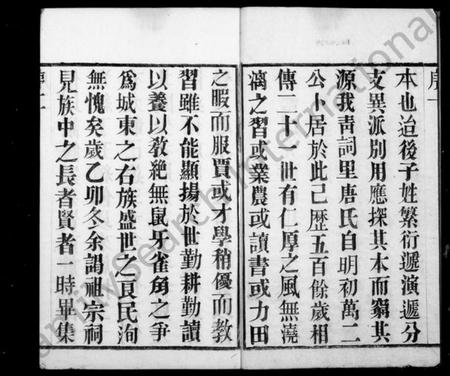 序一
本也迨後子姓繁衍遞演遞分
支異派別用應探其本而窮其
源我靑詞里唐氏自明初萬二
公卜居於此己歷五百餘歲相
傳二十一世有仁厚之風無澆
漓之習或業農或讀書或力田
之暇而服賈或才學稍優而教
習雖不能顯揚於世勤耕勤讀
以養以教絶無鼠牙雀角之爭
爲城東之右族盛世之良民洵
無愧矣歲乙卯冬余謁祖宗祠
見族中之長者賢者一時畢集
序二